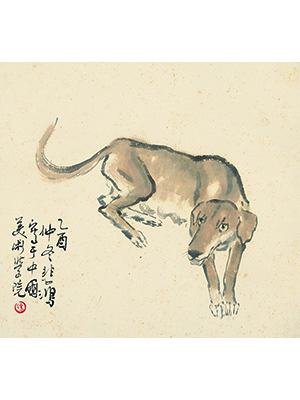 乙酉
仲冬非鴻
寫于中國
美術學院